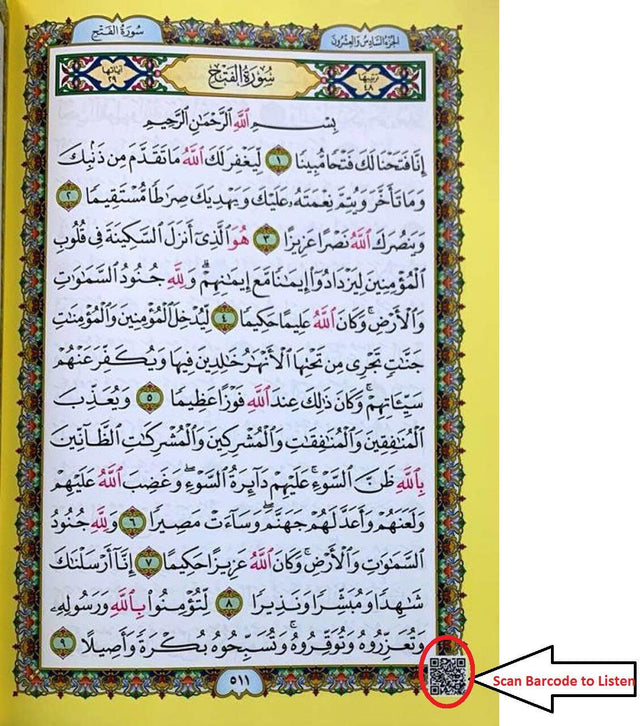 سُورَةُ الفَتْحِ
الجُزْءُ السَّادِسُ وَالعِشْرُونَ
آيَاتُهَا ٢٩
سُورَةُ الفَتْحِ
تَرْتِيبُهَا ٤٨
بِسْمِ اللَّهِ الرَّحْمَٰنِ الرَّحِيمِ
إِنَّا فَتَحْنَا لَكَ فَتْحًا مُّبِينًا ١ لِّيَغْفِرَ لَكَ اللَّهُ مَا تَقَدَّمَ مِن ذَنۢبِكَ
وَمَا تَأَخَّرَ وَيُتِمَّ نِعْمَتَهُۥ عَلَيْكَ وَيَهْدِيَكَ صِرَٰطًا مُّسْتَقِيمًا ٢
وَيَنصُرَكَ اللَّهُ نَصْرًا عَزِيزًا ٣ هُوَ الَّذِىٓ أَنزَلَ السَّكِينَةَ فِى قُلُوبِ
الْمُؤْمِنِينَ لِيَزْدَادُوٓا۟ إِيمَٰنًا مَّعَ إِيمَٰنِهِمْ ۗ وَلِلَّهِ جُنُودُ السَّمَٰوَٰتِ
وَالْأَرْضِ ۚ وَكَانَ اللَّهُ عَلِيمًا حَكِيمًا ٤ لِّيُدْخِلَ الْمُؤْمِنِينَ وَالْمُؤْمِنَٰتِ
جَنَّٰتٍ تَجْرِى مِن تَحْتِهَا الْأَنْهَٰرُ خَٰلِدِينَ فِيهَا وَيُكَفِّرَ عَنْهُمْ
سَيِّـَٔاتِهِمْ ۚ وَكَانَ ذَٰلِكَ عِندَ اللَّهِ فَوْزًا عَظِيمًا ٥ وَيُعَذِّبَ
الْمُنَٰفِقِينَ وَالْمُنَٰفِقَٰتِ وَالْمُشْرِكِينَ وَالْمُشْرِكَٰتِ الظَّآنِّينَ
بِاللَّهِ ظَنَّ السَّوْءِ ۚ عَلَيْهِمْ دَآئِرَةُ السَّوْءِ ۖ وَغَضِبَ اللَّهُ عَلَيْهِمْ
وَلَعَنَهُمْ وَأَعَدَّ لَهُمْ جَهَنَّمَ ۖ وَسَآءَتْ مَصِيرًا ٦ وَلِلَّهِ جُنُودُ
السَّمَٰوَٰتِ وَالْأَرْضِ ۚ وَكَانَ اللَّهُ عَزِيزًا حَكِيمًا ٧ إِنَّآ أَرْسَلْنَٰكَ
شَٰهِدًا وَمُبَشِّرًا وَنَذِيرًا ٨ لِّتُؤْمِنُوا۟ بِاللَّهِ وَرَسُولِهِۦ
وَتُعَزِّرُوهُ وَتُوَقِّرُوهُ ۚ وَتُسَبِّحُوهُ بُكْرَةً وَأَصِيلًا ٩
٥١١
Scan Barcode to Listen